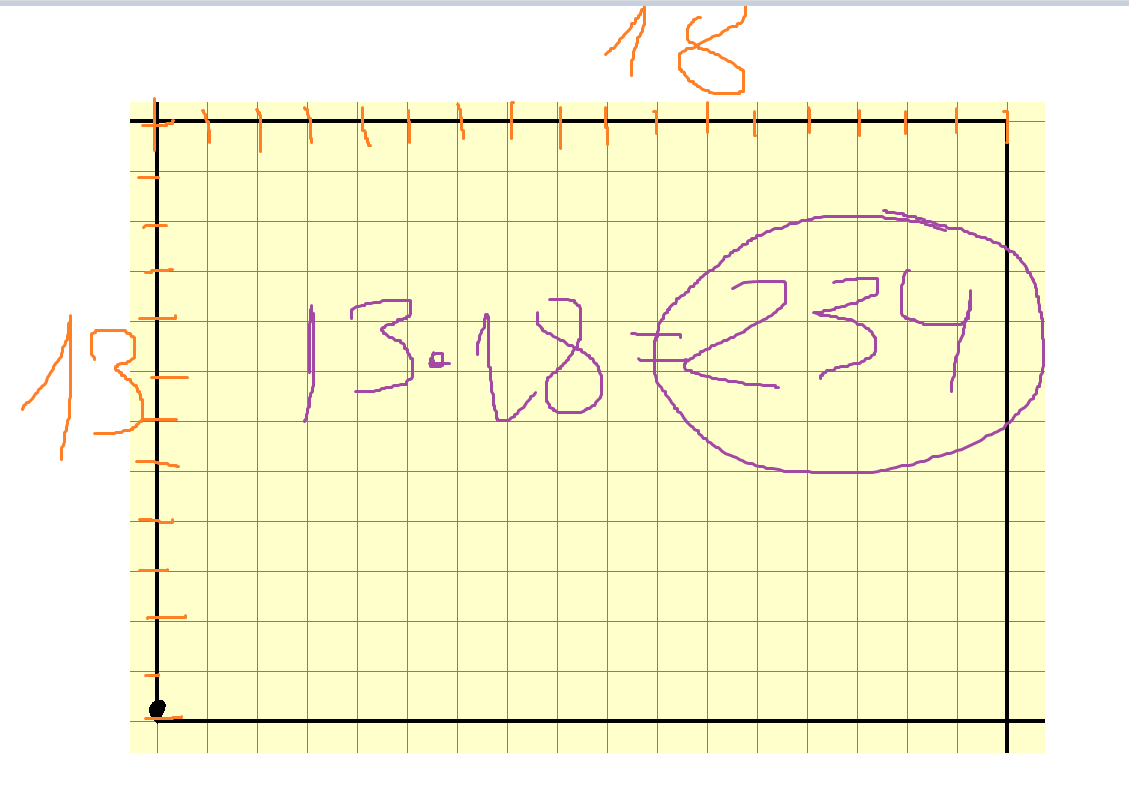 18
13
13·18=234